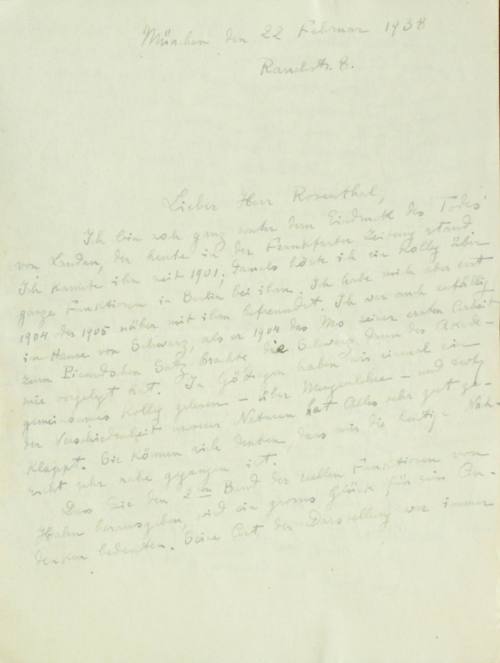 München den 22 Februar 1938
Rauchstr. 8.
Lieber Herr Rosenthal,
Ich bin noch ganz unter dem Eindruck des Todes
von Landau, der heute in der Frankfurter Zeitung stand.
Ich kannte ihn seit 1901, damals hörte ich ein Kolleg über
ganze Funktionen in Berlin bei ihm. Ich habe mich aber erst
1904 oder 1905 näher mit ihm befreundet. Ich war auch zufällig
im Hause von Schwarz, als er 1904 das Ms seiner ersten Arbeit
zum Picardschen Satz brachte die Schwarz dann der Akade-
mie vorgelegt hat. In Göttingen haben wir einmal ein
gemeinsames Kolleg gelesen – über Mengenlehre – und trotz
der Verschiedenheit unserer Naturen hat Alles sehr gut ge-
klappt. Sie können sich denken, dass mir die heutige Nach-
richt sehr nahe gegangen ist.
Dass Sie den 2ten Band der reellen Funktionen von
Hahn herausgeben wird ein grosses Glück für sein An-
denken bedeuten. Seine Art der Darstellung war immer